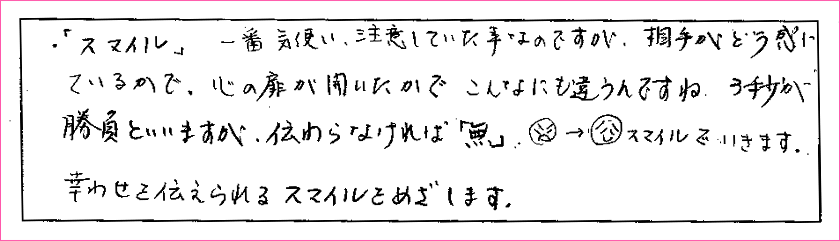 ・「スマイル」 一番気使い、注意していた事なのですが、相手がどう感じ
ているかで、心の扉が開いたかで こんなにも違うんですね 3秒が
勝負といいますが、伝わらなければ「無」. → スマイルでいきます。
幸わせを伝えられるスマイルをめざします。